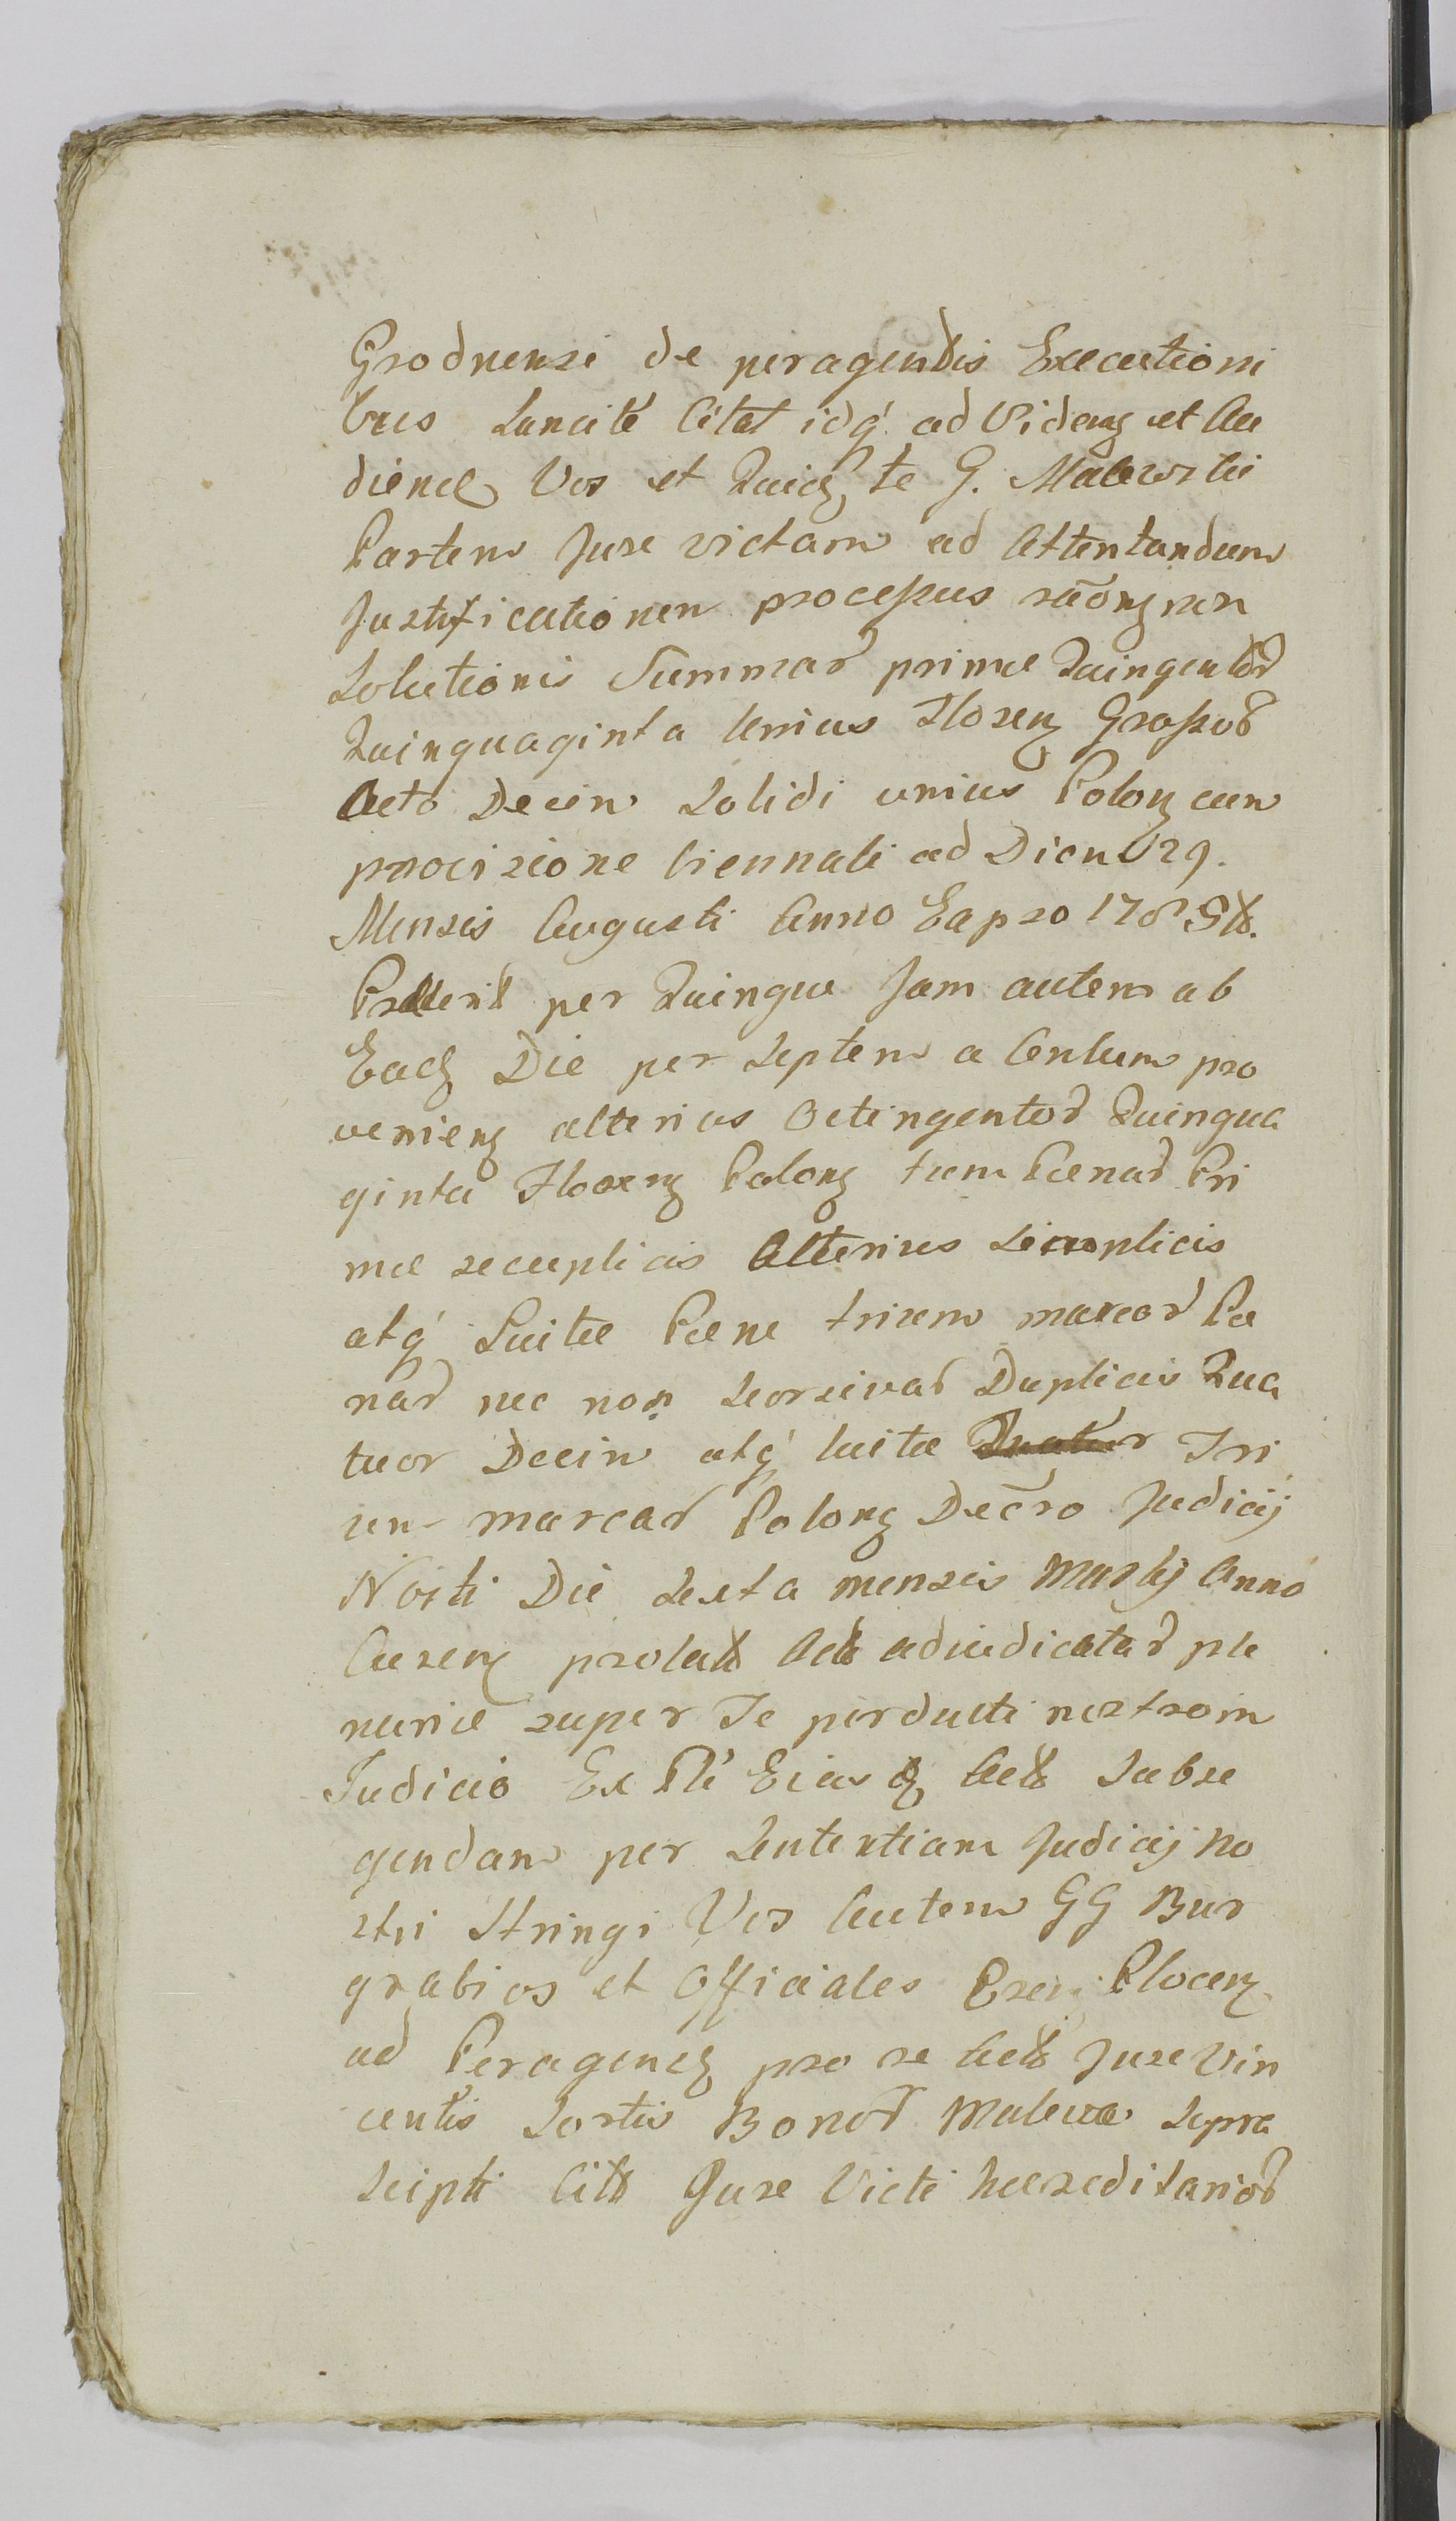 Grodnensi de peragendis Executioni
bus Sancitĕ Citat idq́ ad Videnʒ et Au
diend Vos et Quidʒ te G. Malewski
Partem Jure victam ad Attentandum
Justificationem processus raõnʒ non
Solutionis Summar primæ Quingentor
Quinquaginta Unius Florenʒ Grossor
Octo Decim Solidi unius Polonʒ cum
provisione biennali ad Diem 29.
Mensis Augusti Anno Eapso 1785
Præterit per Quinque Jam autem ab
Eadʒ Die per Septem a Centum pro
venienʒ alterius Octingentor Quinqua
ginta Florenʒ Polonʒ tum Pænar Pri
mæ secuplicis Alterius Simplicis
atq́ Luitæ Pænæ trium marcar Pæ
nar nec non Seorsivar Duplicis Qua
tuor Decim atq́ luitæ Tri
um marcar Polonʒ Decro Judicij
Nostri Die Sexta mensis Martij Anno
Currenʒ prolato Acto adiudicatar ple
nariæ super Te perducti nostroin
Judicio Ex Pte Eiusdʒ Act Subse
quendam per Sententiam Judicij no
stri Stringi Vos Autem GG Bur
grabios et Officiales Csen Plocenʒ
ad Peragendʒ pro re Act Jure Vin
centis Sortis Bonor Malewo Supra
Scipti Cit Jure Victi hæreditarior